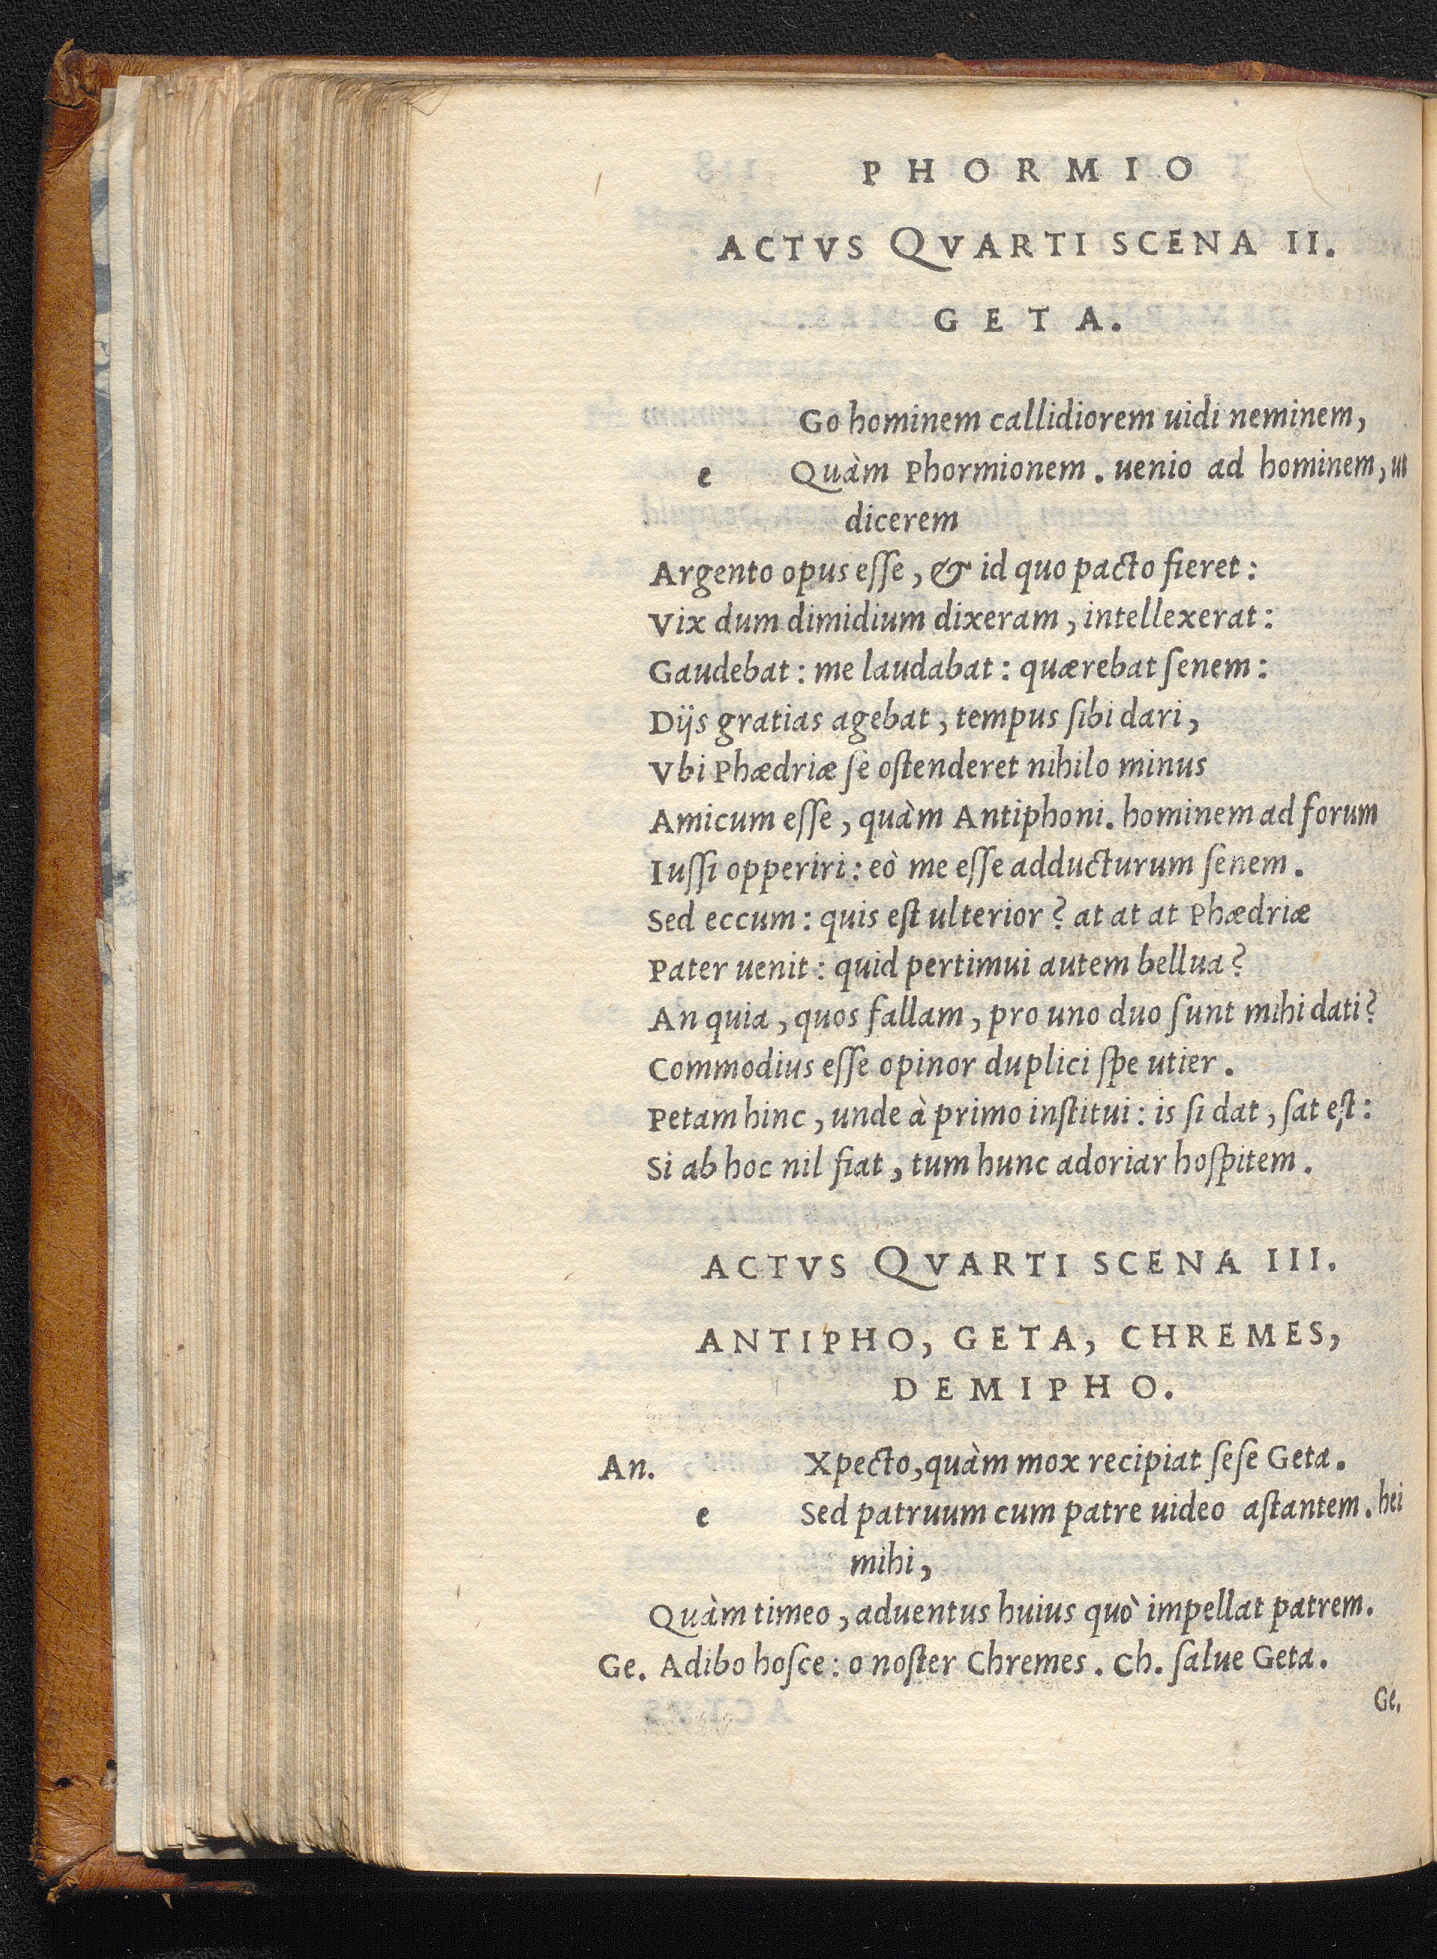 PHORMIO
ACTVS QVARTI SCENA II.
GETA.
Go hominem callidiorem uidi neminem,
e Quàm Phormionem. uenio ad hominem, ut
dicerem
Argento opus eſſe, & id quo pacto fieret:
Vix dum dimidium dixeram, intellexerat:
Gaudebat: me laudabat: quærebat ſenem:
Dijs gratias agebat, tempus ſibi dari,
Vbi Phædriæ ſe oſtenderet nihilo minus
Amicum eſſe, quàm Antiphoni. hominem ad forum
Iuſſi opperiri: eò me eſſe adducturum ſenem.
Sed eccum: quis eſt ulterior? at at at Phædriæ
Pater uenit: quid pertimui autem bellua?
An quia, quos fallam, pro uno duo ſunt mihi dati?
Commodius eſſe opinor duplici ſpe utier.
Petam hinc, unde à primo inſtitui: is ſi dat, ſat eſt:
Si ab hoc nil fiat, tum hunc adoriar hoſpitem.
ACTVS QVARTI SCENA III.
ANTIPHO, GETA, CHREMES,
DEMIPHO.
An. Xpecto, quàm mox recipiat ſeſe Geta.
e Sed patruum cum patre uideo aſtantem. hei
mihi,
Quàm timeo, aduentus huius quò impellat patrem.
Ge. Adibo hoſce: o noſter Chremes. Ch. ſalue Geta.
Ge.